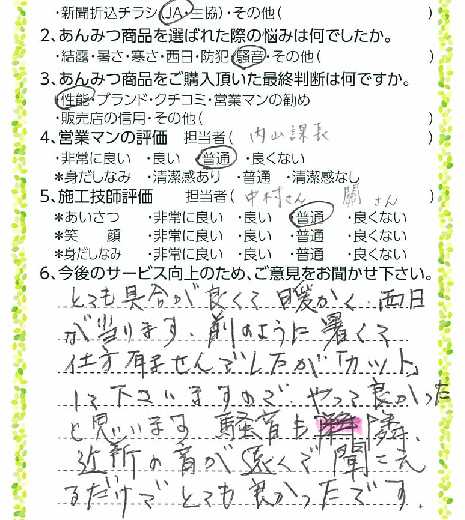 ・新聞折込チラシ・JA・生協)・その他(　　　)
2、あんみつ商品を選ばれた際の悩みは何でしたか。
・結露・暑さ・寒さ・西日・防犯・騒音・その他(　　　)
3、あんみつ商品をご購入頂いた最終判断は何ですか。
・性能・ブランド・クチコミ・営業マンの勧め
・販売店の信用・その他(　　　)
4、営業マンの評価　担当者(　内山課長　)
・非常に良い　・良い　・普通　・良くない
*身だしなみ　・清潔感あり　・普通　・清潔感なし
5、施工技師評価　担当者(　中村さん　関さん　)
*あいさつ　・非常に良い　・良い　・普通　・良くない
*笑　顔　・非常に良い　・良い　・普通　・良くない
*身だしなみ　・非常に良い　・良い　・普通　・良くない
6、今後のサービス向上のため、ご意見をお聞かせ下さい。
とても具合が良くて暖かく、西日
が当ります、前のように暑くて
仕方有ませんでしたが「カット」
して下さいますので、やって良かった
と思います。騒音も隣、
近所の音が遠くで聞こえ
るだけでとても良かったです。